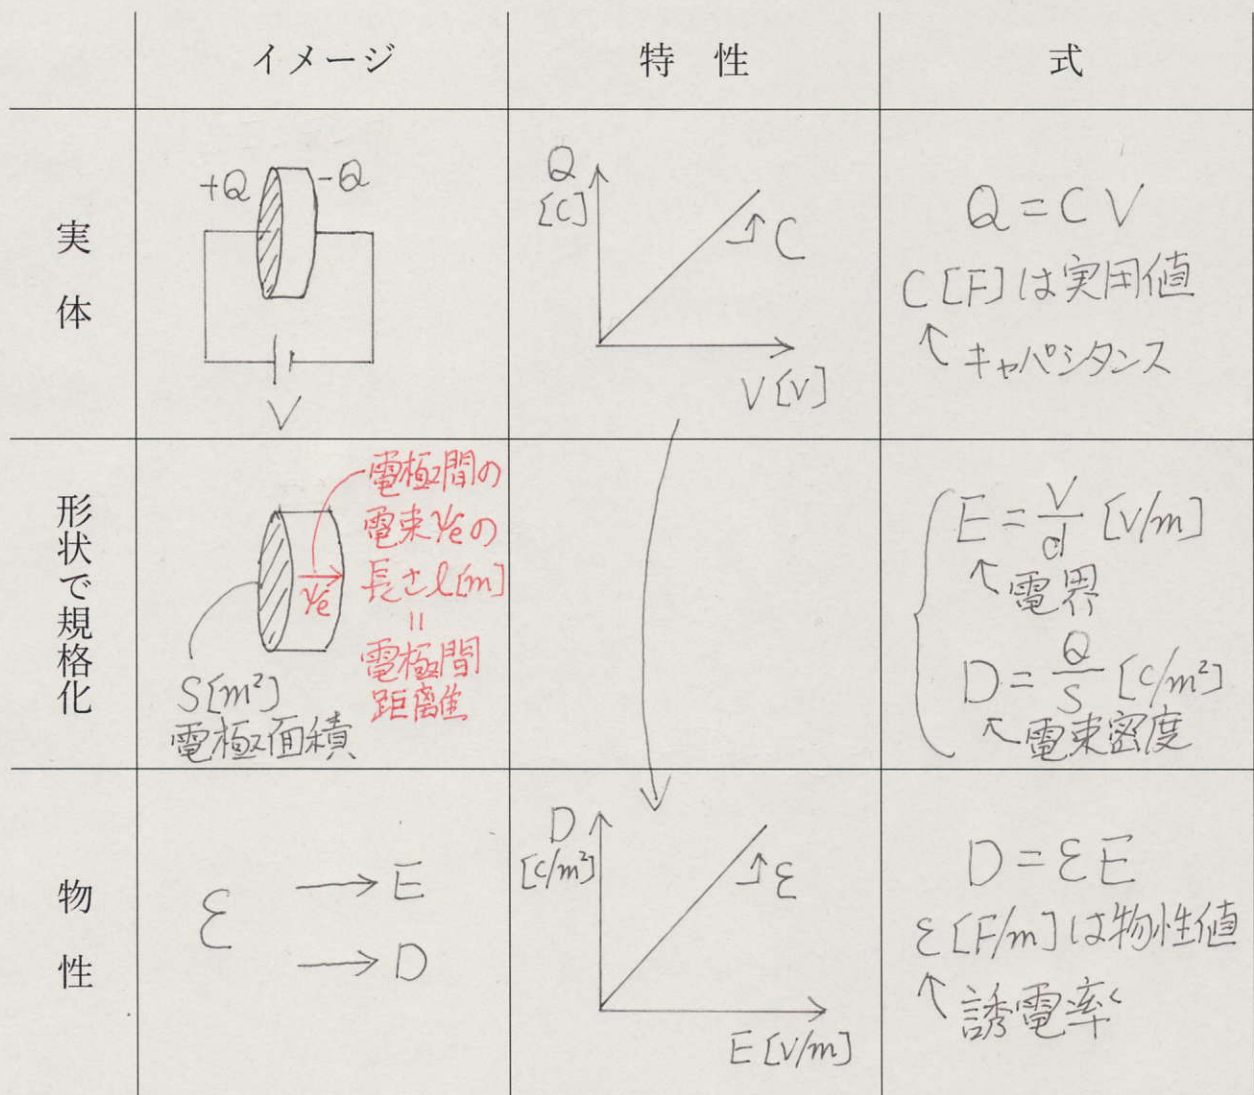 イメージ
特 性
式
実 体
+Q
-Q
V
Q
[C]
C
V[V]
Q = CV
C[F]は実用値
キャパシタンス
形状で規格化
電極間の
電束ψeの
長さl[m]
=
電極間
距離
ψe
S[m²]
電極面積
E = V/d [V/m]
電界
D = Q/S [C/m²]
電束密度
物 性
ε
E
D
D
[C/m²]
ε
E[V/m]
D = εE
ε[F/m]は物性値
誘電率